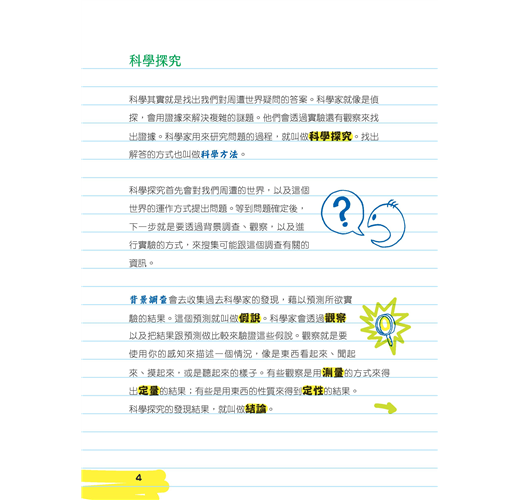 科學探究
科學其實就是找出我們對周遭世界疑問的答案。科學家就像是偵
探，會用證據來解決複雜的謎題。他們會透過實驗還有觀察來找
出證據。科學家用來研究問題的過程，就叫做科學探究。找出
解答的方式也叫做科學方法。
科學探究首先會對我們周遭的世界，以及這個
世界的運作方式提出問題。等到問題確定後，
下一步就是要透過背景調查、觀察，以及進
行實驗的方式，來搜集可能跟這個調查有關的
資訊。
?
背景調查會去收集過去科學家的發現，藉以預測所欲實
驗的結果。這個預測就叫做假說。科學家會透過觀察
以及把結果跟預測做比較來驗證這些假說。觀察就是要
使用你的感知來描述一個情況，像是東西看起來、聞起
來、摸起來，或是聽起來的樣子。有些觀察是用測量的方式來得
出定量的結果；有些是用東西的性質來得到定性的結果。
科學探究的發現結果，就叫做結論。
4